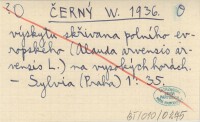 ČERNÝ W. 1936.
výskytu skřivana polního ev-
ropského (Alauda arvensis ar-
vensis L.) na vysokých horách.
- Sylvia (Praha) 1: 35.